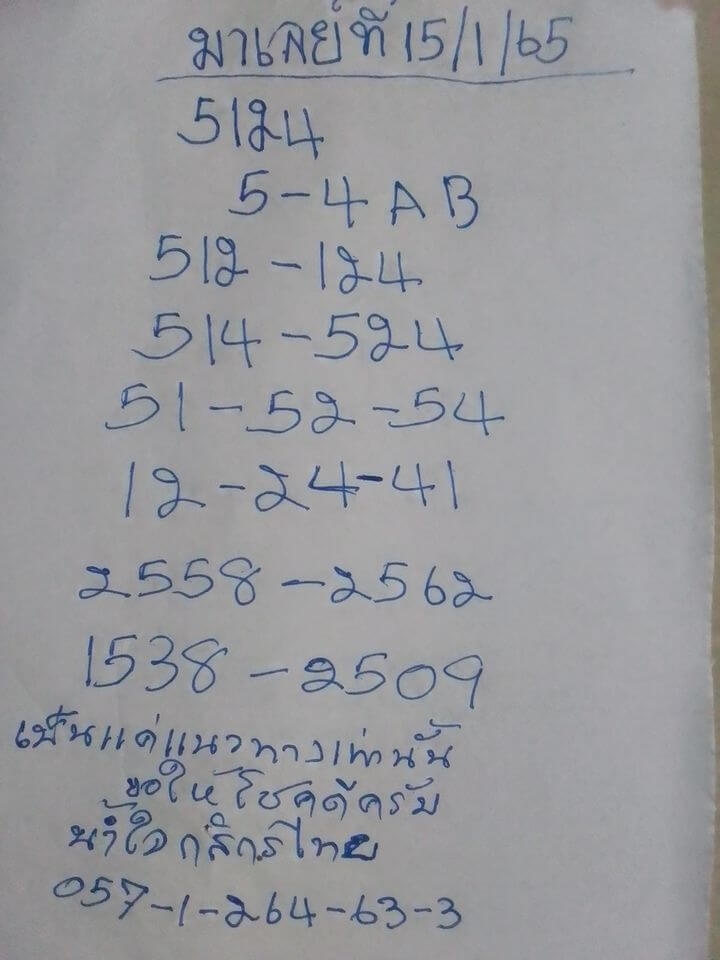 มาเลย์ที่ 15/1/65
5124
5-4 A B
512 - 124
514 - 524
51 - 52 - 54
12 - 24 - 41
2558 - 2562
1538 - 2509
เป็นแค่แนวทางเท่านั้น
ขอให้โชคดีครับ
น้ำใจกสิกรไทย
057-1-264-63-3